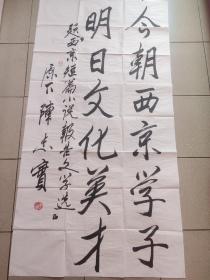 今朝西京学子
明日文化英才
题西京短篇小说报告文学选
原下陈忠实